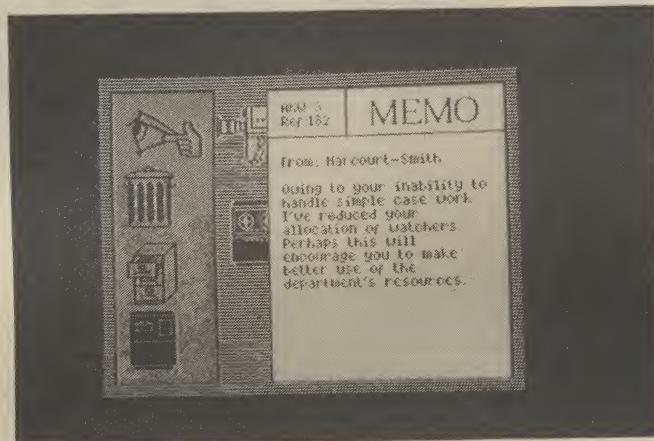 MEMO
Ref 182
From: Harcourt-Smith
Owing to your inability to
handle simple case work
I've reduced your
allocation of watchers.
Perhaps this will
encourage you to make
better use of the
department's resources.